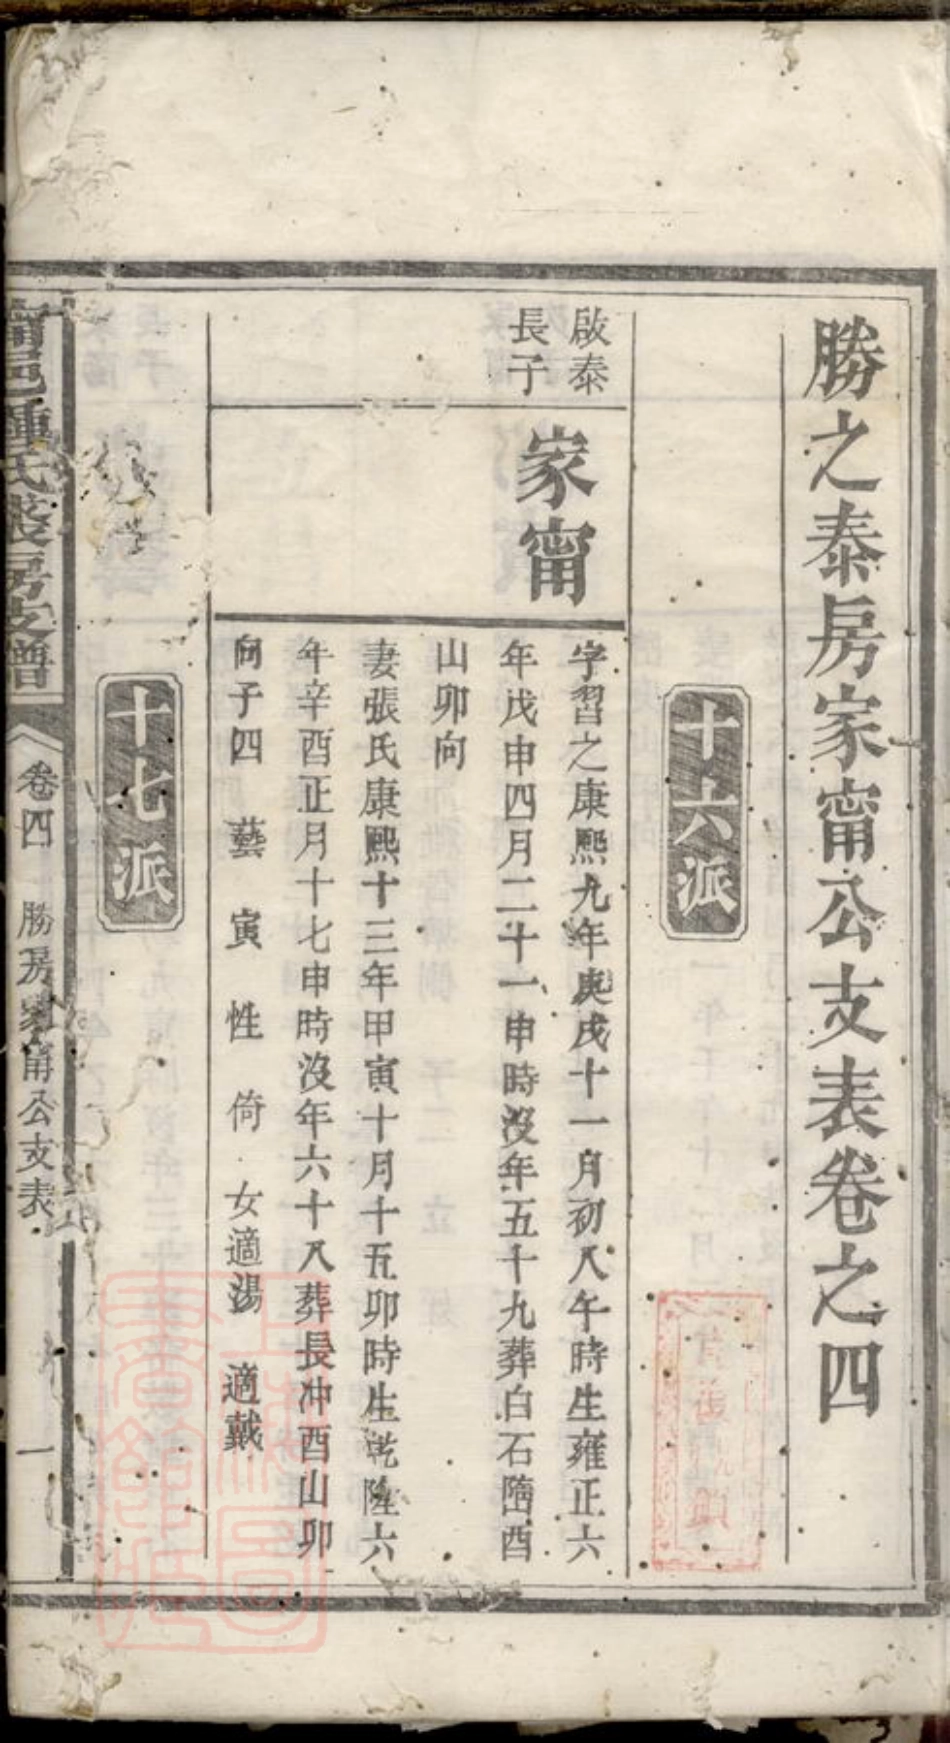 勝之泰房家甯公支表卷之四
十六派
啟泰
長子
家甯
字習之康熙九年庚戌十一月初八午時生雍正六
年戊申四月二十一申時沒年五十九葬白石𡺾酉
山卯向
妻張氏康熙十三年甲寅十月十五卯時生乾隆六
年辛酉正月十七申時沒年六十八葬長冲酉山卯
向子四 藝 寅 性 倚 女適湯 適戴
十七派
氏 房支譜 卷四 勝房家甯公支表 一